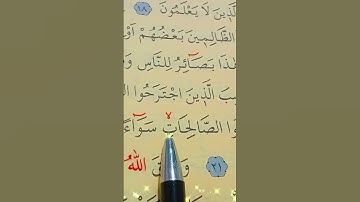 لَّذِينَ لَا يَعْلَمُونَ ١٨
الظَّالِمِينَ بَعْضُهُمْ
هٰذَا بَصَائِرُ لِلنَّاسِ
الَّذِينَ اجْتَرَحُوا
الصَّالِحَاتِ سَوَاءً
٢١ اللّٰهُ